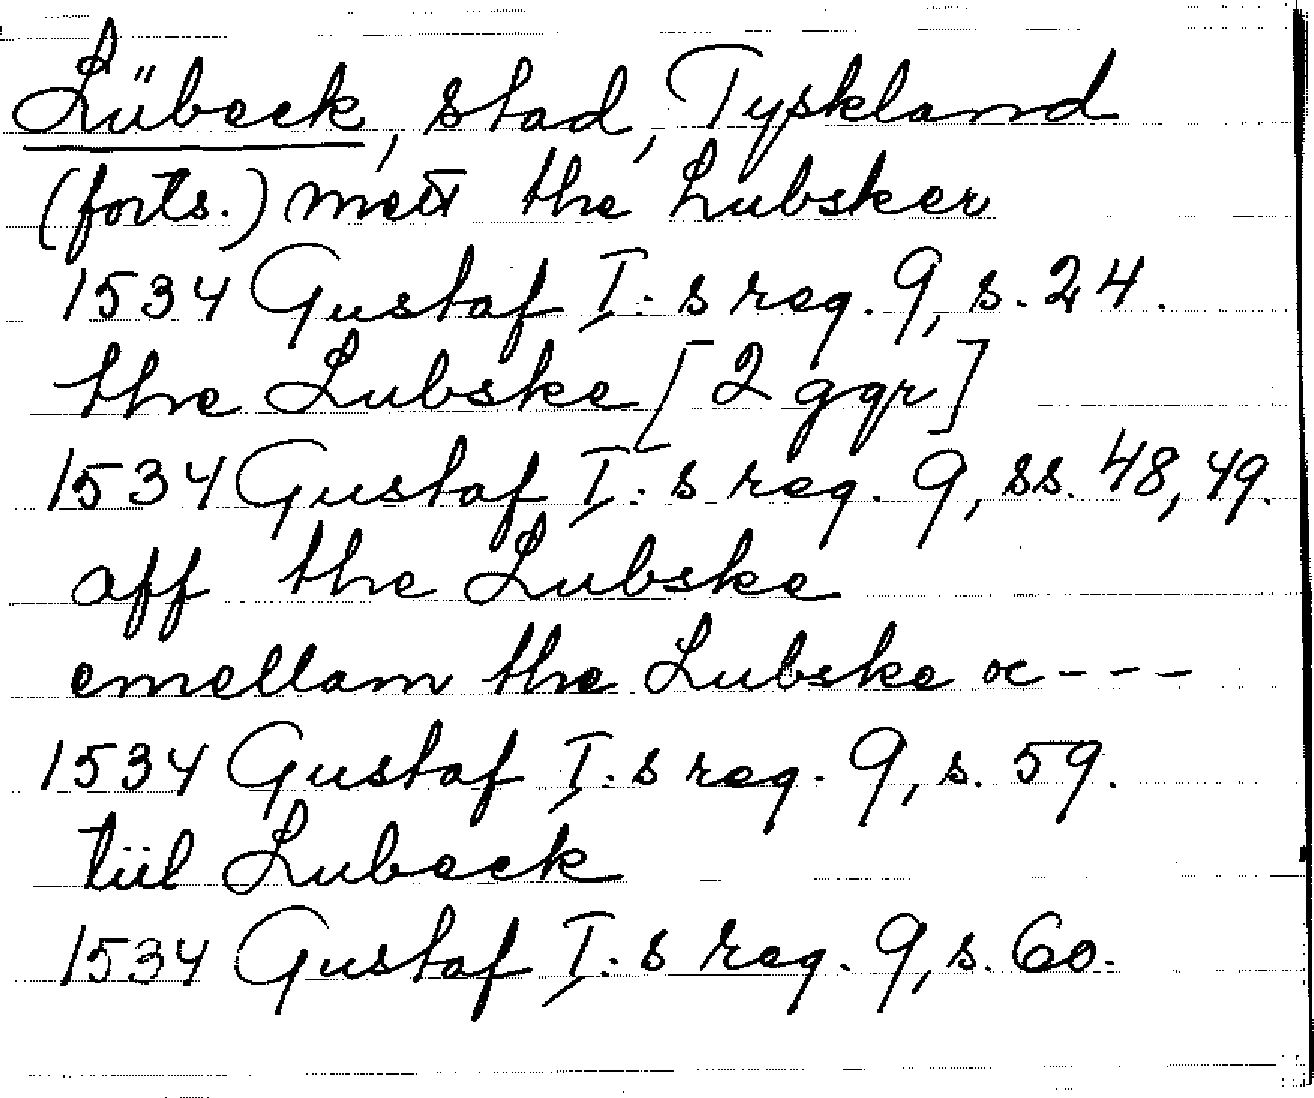 Lübeck, stad, Tyskland
(forts.) mett the Lubsker
1534 Gustaf I:s reg. 9, s. 24.
the Lubske [2 ggr]
1534 Gustaf I:s reg. 9, ss. 48, 49.
aff the Lubske
emellam the Lubske oc - - -
1534 Gustaf I:s reg. 9, s. 59.
tiil Lubeck
1534 Gustaf I:s reg. 9, s. 60.